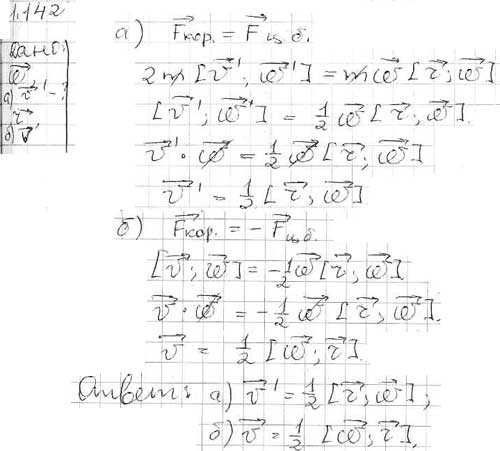 1.142
Дано:
ω⃗
а) v⃗' - ?
r⃗
б) v⃗'
а) F⃗кор. = F⃗ц.б.
2m [v⃗'; ω⃗'] = mω⃗ [r⃗; ω⃗]
[v⃗'; ω⃗'] = 1/2 ω⃗ [r⃗; ω⃗].
v⃗' · ω⃗ = 1/2 ω⃗ [r⃗; ω⃗]
v⃗' = 1/2 [r⃗; ω⃗]
б) F⃗кор. = - F⃗ц.б.
[v⃗; ω⃗] = -1/2 ω⃗ [r⃗; ω⃗]
v⃗ · ω⃗ = -1/2 ω⃗ [r⃗; ω⃗].
v⃗ = 1/2 [ω⃗; r⃗].
Ответ: а) v⃗' = 1/2 [r⃗; ω⃗];
б) v⃗ = 1/2 [ω⃗; r⃗].